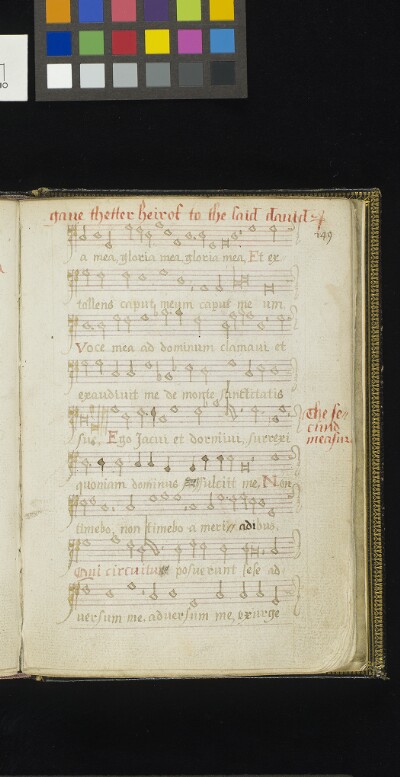 gaue thetter heirof to the said dauid
149
a mea, gloria mea, gloria mea, Et ex
tollens caput, meum caput me um
Voce mea ad dominum clamaui, et
exaudiuit me de monte sanctitatis
The se=
cund
measur
sus, Ego Jacui et dormiui, surrexi
quoniam dominus sulcitt me, Non
timebo, non timebo a meri adibus,
Qui circuitu posuerunt sese ad
uersum me, aduersum me, exurge